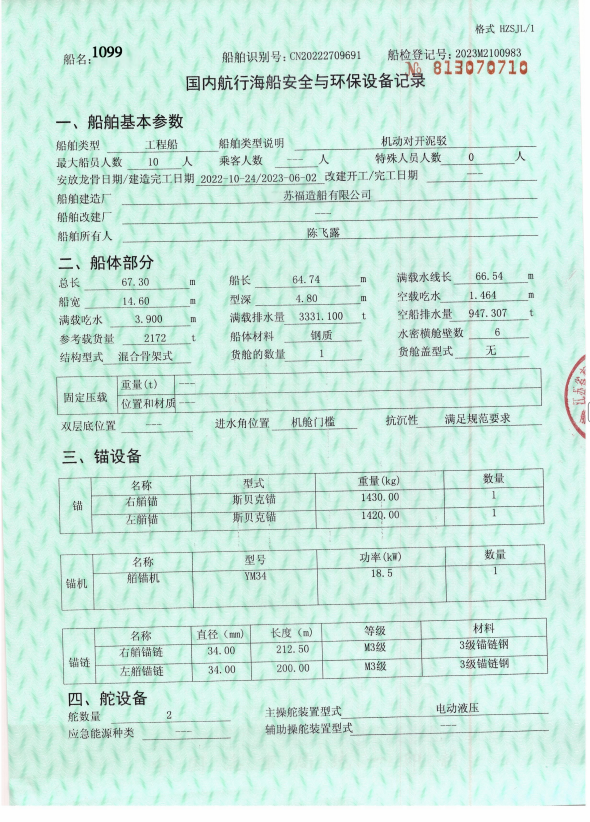 格式 HZSJL/1
船名:1099 船舶识别号:CN20222709691 船检登记号:2023M2100983
№ 813070710
国内航行海船安全与环保设备记录
一、船舶基本参数
船舶类型 工程船 船舶类型说明 机动对开泥驳
最大船员人数 10 人 乘客人数 --- 人 特殊人员人数 0 人
安放龙骨日期/建造完工日期 2022-10-24/2023-06-02 改建开工/完工日期 ---
船舶建造厂 苏福造船有限公司
船舶改建厂 ---
船舶所有人 陈飞露
二、船体部分
总长 67.30 m 船长 64.74 m 满载水线长 66.54 m
船宽 14.60 m 型深 4.80 m 空载吃水 1.464 m
满载吃水 3.900 m 满载排水量 3331.100 t 空船排水量 947.307 t
参考载货量 2172 t 船体材料 钢质 水密横舱壁数 6
结构型式 混合骨架式 货舱的数量 1 货舱盖型式 无
固定压载 重量(t) ---
位置和材质 ---
双层底位置 --- 进水角位置 机舱门槛 抗沉性 满足规范要求
三、锚设备
锚 名称 型式 重量(kg) 数量
右艏锚 斯贝克锚 1430.00 1
左艏锚 斯贝克锚 1420.00 1
锚机 名称 型号 功率(kW) 数量
艏锚机 YM34 18.5 1
锚链 名称 直径(mm) 长度(m) 等级 材料
右艏锚链 34.00 212.50 M3级 3级锚链钢
左艏锚链 34.00 200.00 M3级 3级锚链钢
四、舵设备
舵数量 2 主操舵装置型式 电动液压
应急能源种类 --- 辅助操舵装置型式 ---